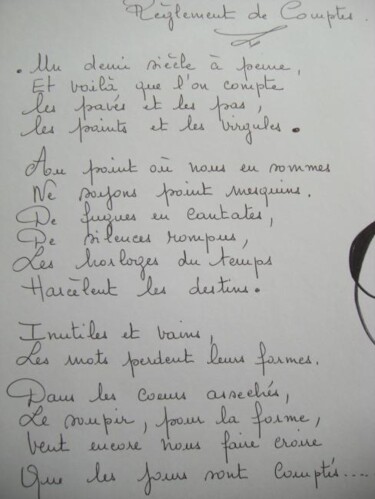 Règlement de Comptes.
. Un demi siècle à peine,
Et voilà que l'on compte
les pavés et les pas,
les points et les virgules.
Au point où nous en sommes
Ne soyons point mesquins.
De fugues en cantates,
De silences rompus,
Les horloges du temps
Harcèlent les destins.
Inutiles et vains,
Les mots perdent leurs formes.
Dans les coeurs assechés,
Le soupir, pour la forme,
Veut encore nous faire croire
Que les jours sont comptés.....